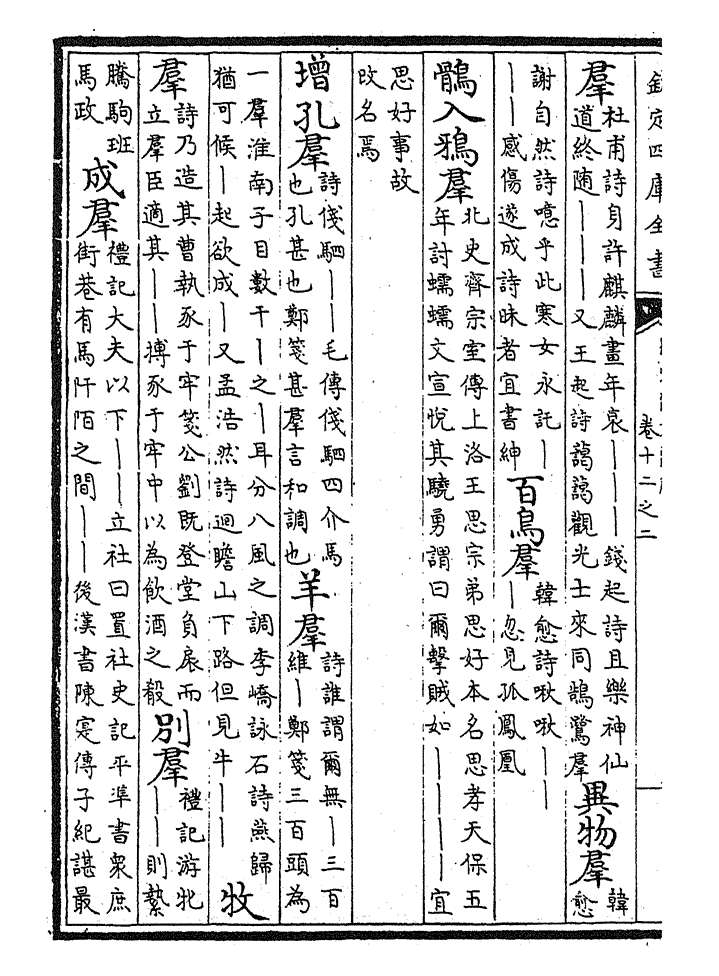 欽定四庫全書
卷十二之二
羣
杜甫詩身許麒麟畫年衰丨丨丨錢起詩且樂神仙
道終随丨丨丨又王起詩藹藹觀光士來同鵠鷺羣
異物羣
韓
愈
謝自然詩噫乎此寒女永託丨
丨丨感傷遂成詩昧者宜書紳
百鳥羣
韓愈詩啾啾丨丨
丨忽見孤鳳凰
鶻入鴉羣
北史齊宗室傳上洛王思宗弟思好本名思孝天保五
年討蠕蠕文宣悅其驍勇謂曰爾擊賊如丨丨丨丨宜
思好事故
改名焉
增孔羣
詩俴駟丨丨毛傳俴駟四介馬
也孔甚也鄭箋甚羣言和調也
羊羣
詩誰謂爾無丨三百
維丨鄭箋三百頭為
一羣淮南子目數千丨之丨耳分八風之調李嶠詠石詩燕歸
猶可候丨起欲成丨又孟浩然詩迴瞻山下路但見牛丨丨
牧
羣
詩乃造其曹執豕于牢箋公劉既登堂負扆而
立羣臣適其丨丨搏豕于牢中以為飲酒之殽
別羣
禮記游牝
丨丨則縶
騰駒班
馬政
成羣
禮記大夫以下丨丨丨立社曰置社史記平準書衆庶
街巷有馬阡陌之間丨丨後漢書陳寔傳子紀諶最